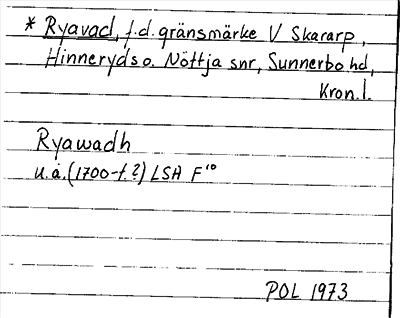 * Ryavad, f.d. gränsmärke V Skararp,
Hinneryds o. Nöttja snr, Sunnerbo hd,
Kron.l.
Ryawadh
u.å. (1700-t.?) LSA F¹⁰
POL 1973